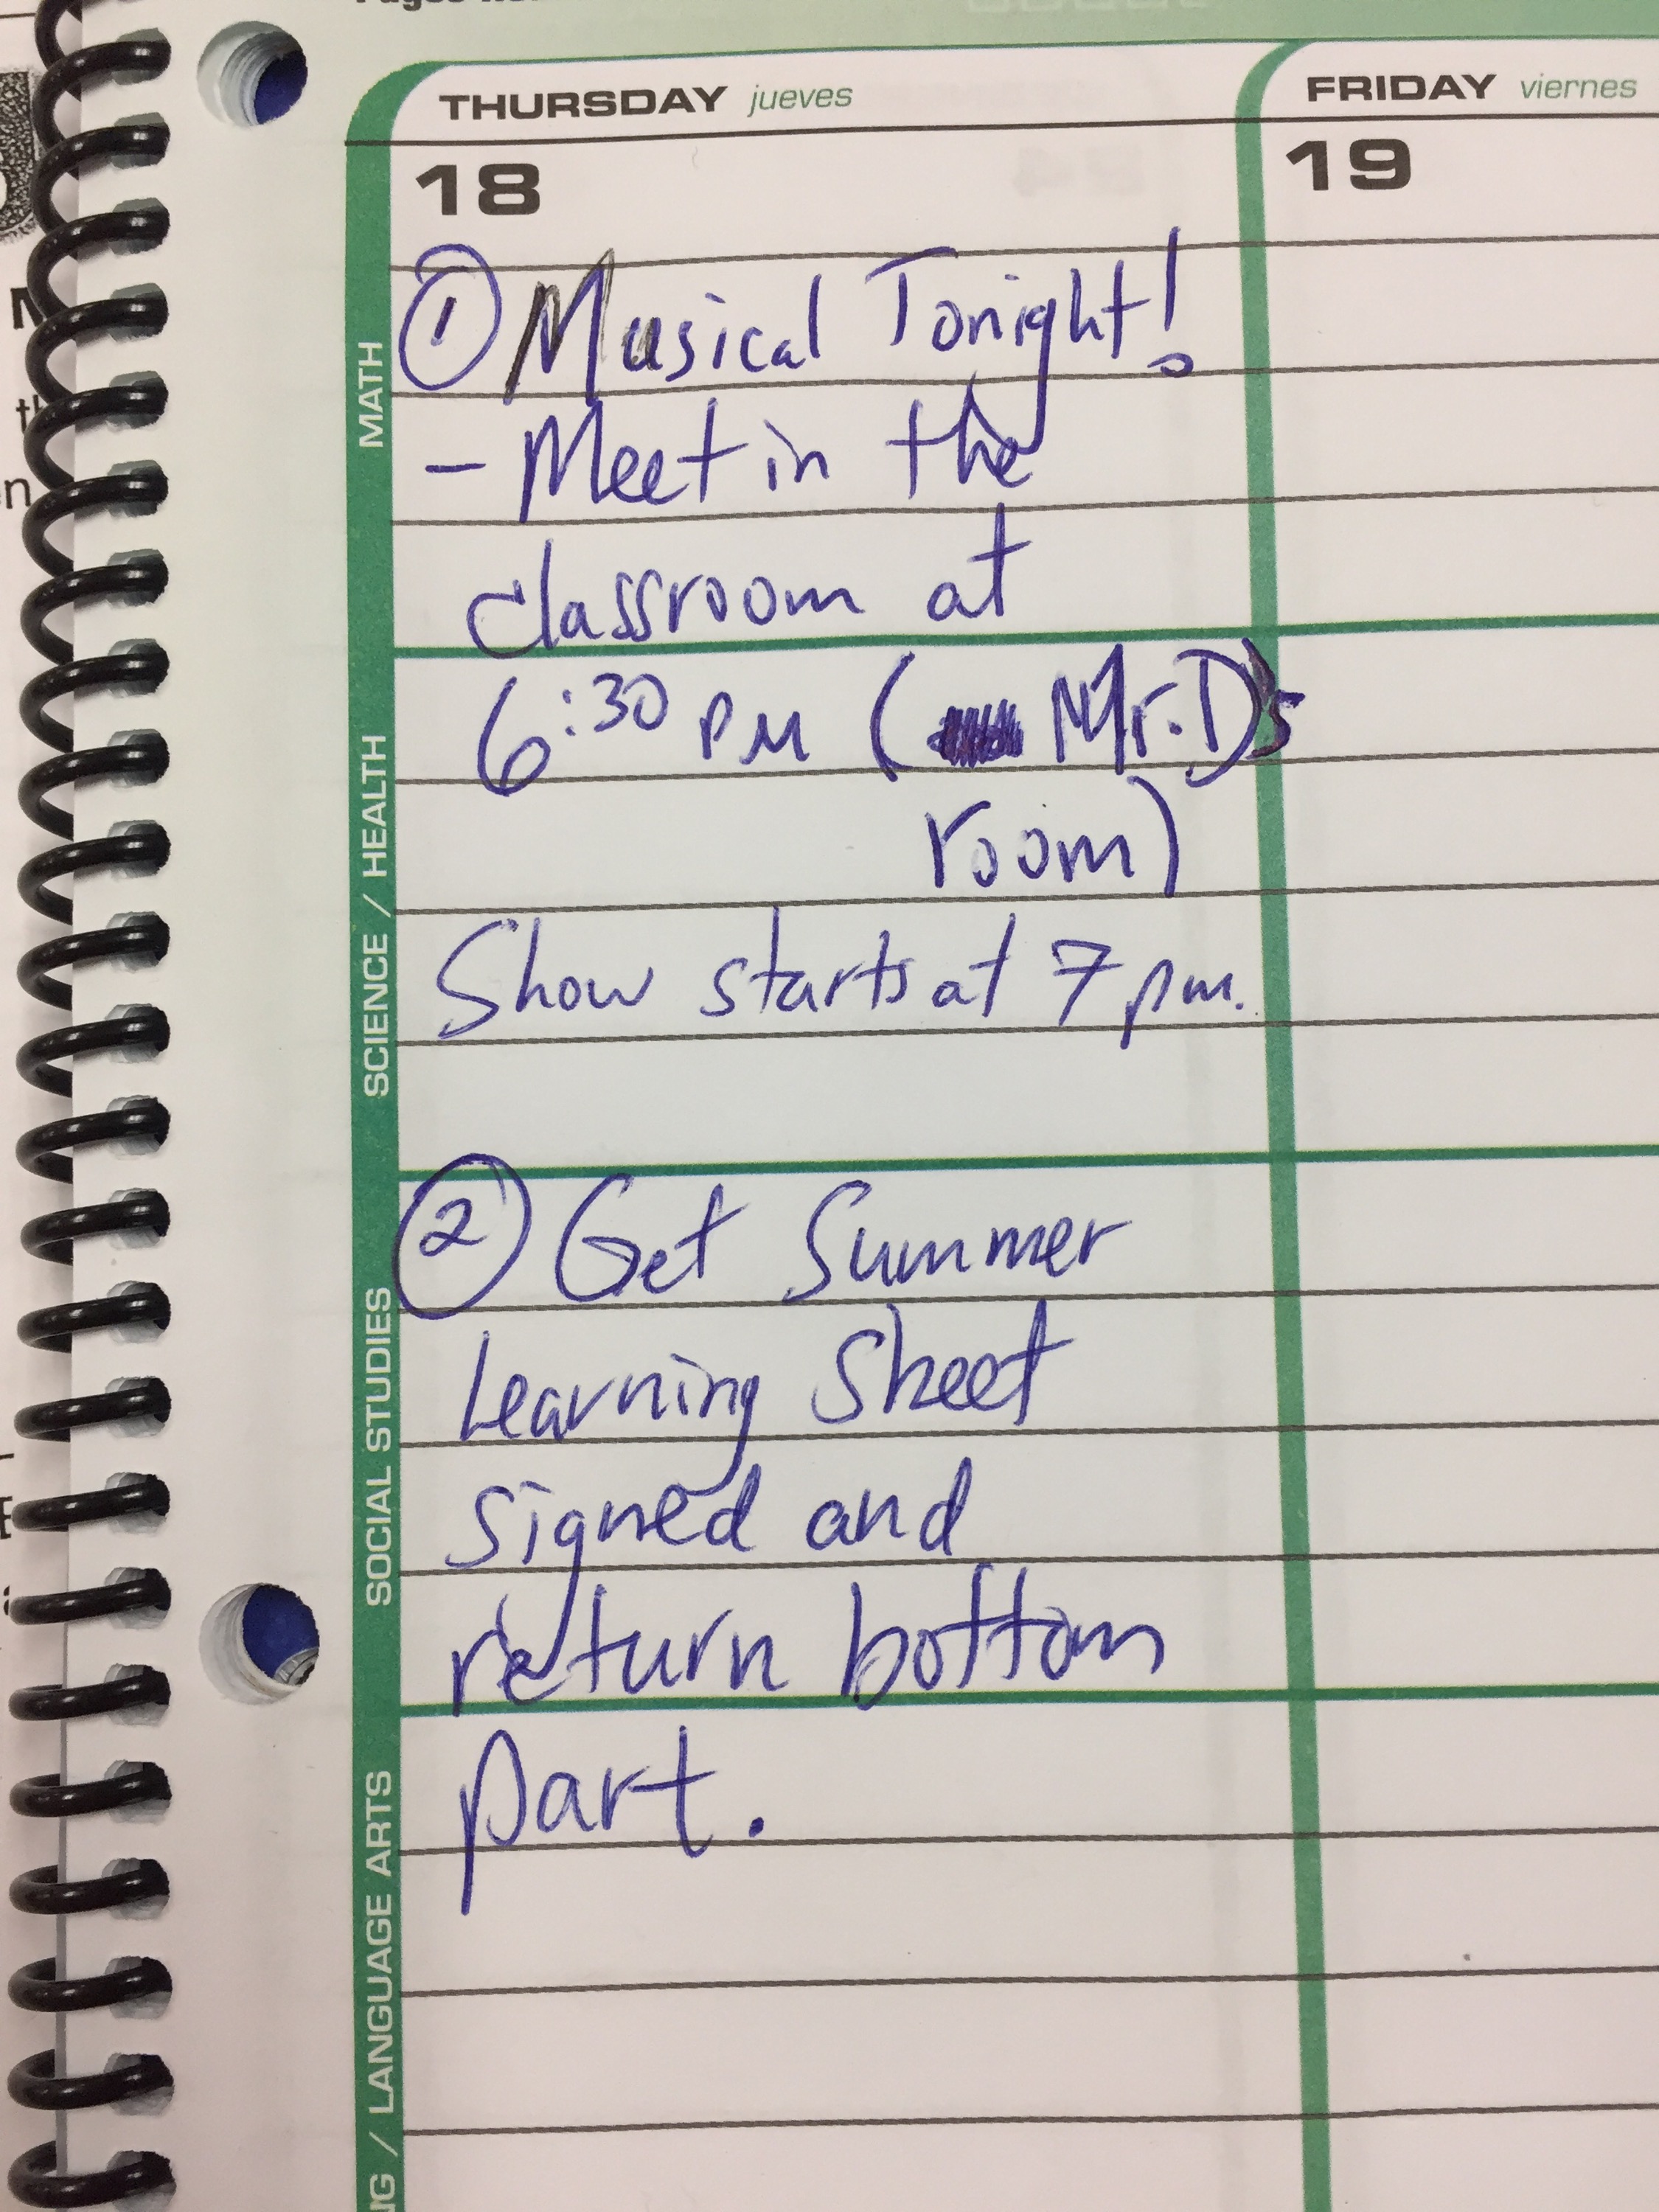 THURSDAY jueves
FRIDAY viernes
18
19
① Musical Tonight!
- Meet in the
classroom at
6:30 PM (Mr. D's
room)
Show starts at 7 pm.
② Get Summer
Learning Sheet
signed and
return bottom
part.
MATH
SCIENCE / HEALTH
SOCIAL STUDIES
/ LANGUAGE ARTS